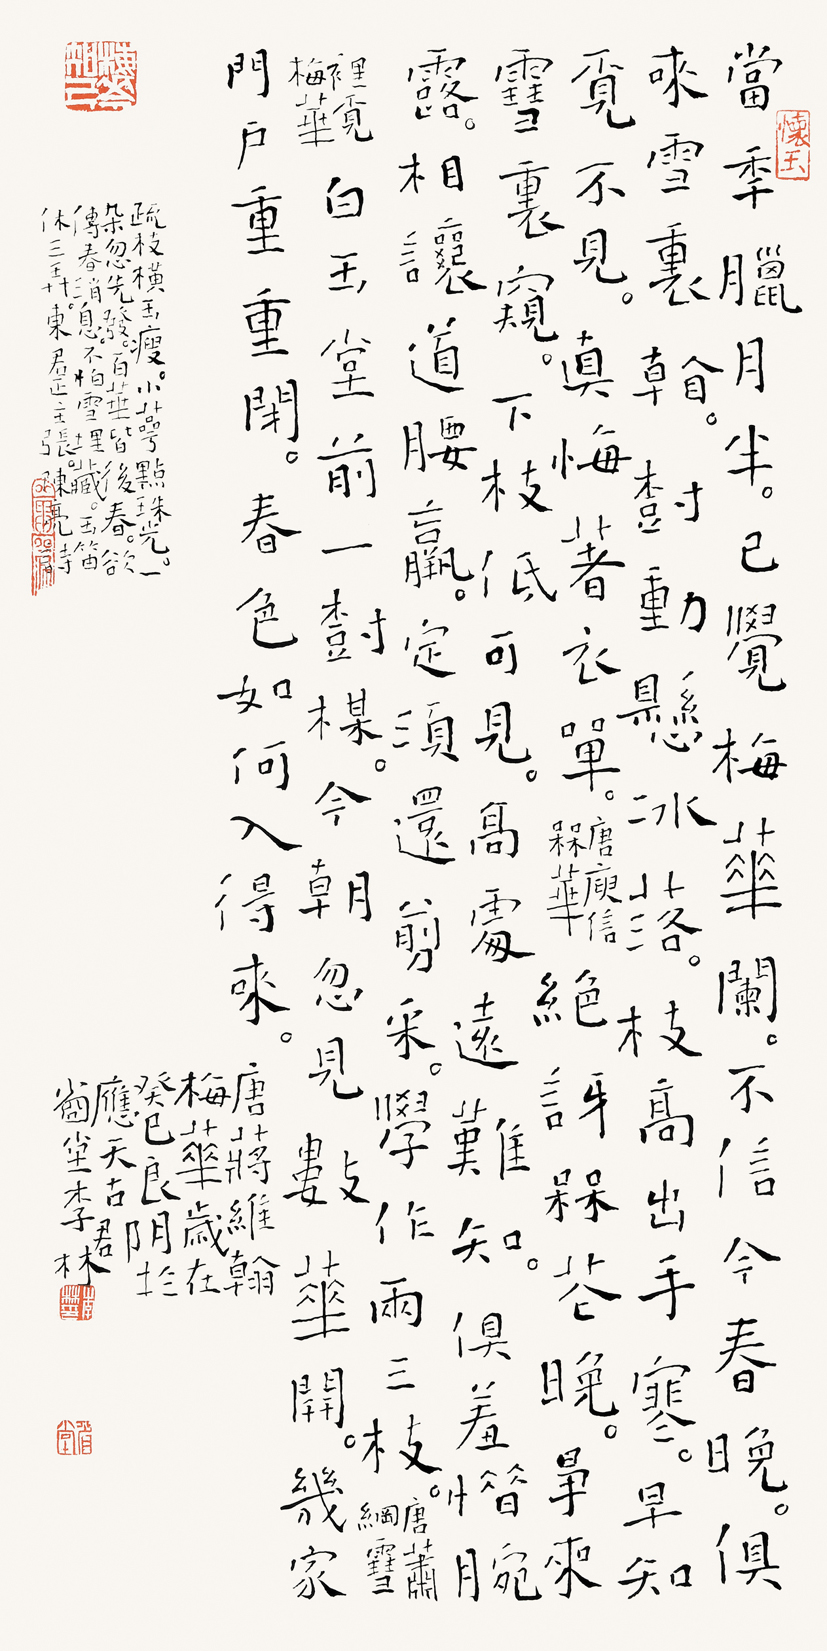 懷玉
當年臘月半。已覺梅華闌。不信今春晚。俱
來雪裏看。樹動懸冰落。枝高出手寒。早知
覓不見。真悔著衣單。唐庾信槑華 絕訝槑芲晚。爭來
雪裏窺。下枝低可見。高處遠難知。俱羞惜腕
露。相讓道腰羸。定須還剪采。學作兩三枝。唐蕭綱雪
裡覓梅華 白玉堂前一樹楳。今朝忽見數華開。幾家
門戶重重閉。春色如何入得來。
唐蔣維翰
梅華歲在
癸巳良於
應天古君
堂李林
疏枝橫玉瘦。小萼點珠光。一
朵忽先發。百華皆後春。欲
傳春消息。不怕雪埋藏。玉笛
休三弄。東君正主張。陳亮詩